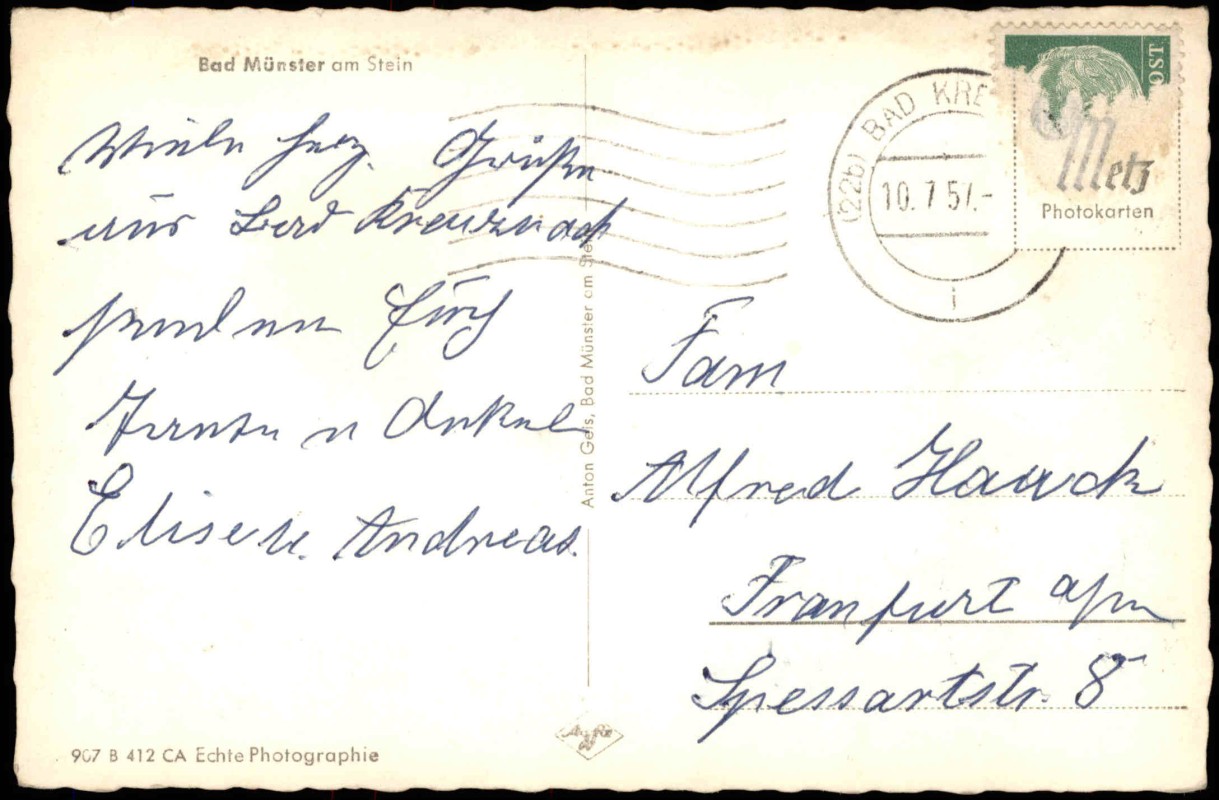 Bad Münster am Stein
Viele herz. Grüße
aus Bad Kreuznach
senden Euch
Tante u Onkel
Elise u. Andreas.
Anton Geis, Bad Münster am Stein
(22b) BAD KRE
10. 7 57.-
i
OST
Metz
Photokarten
Fam
Alfred Haack
Franfurt a/m
Spessartstr. 8
907 B 412 CA Echte Photographie
Agfa